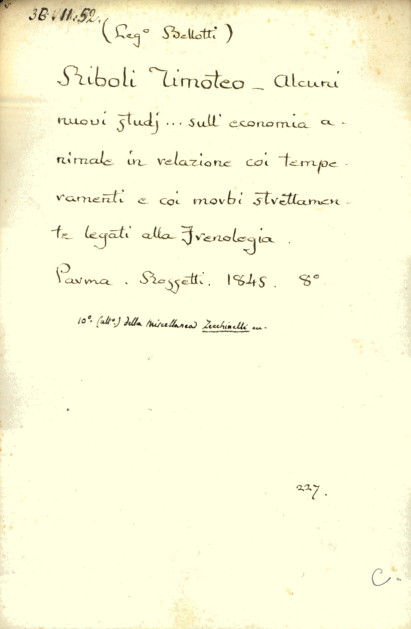 3B.VII.52.
(Leg° Bellotti)
Riboli Timoteo _ Alcuni
nuovi studj ... sull' economia a-
nimale in relazione coi tempe-
ramenti e coi morbi strettamen-
te legati alla Frenologia.
Parma. Rossetti. 1845. 8°
10°. (all°.) della Miscellanea Zecchinelli
227.
C.